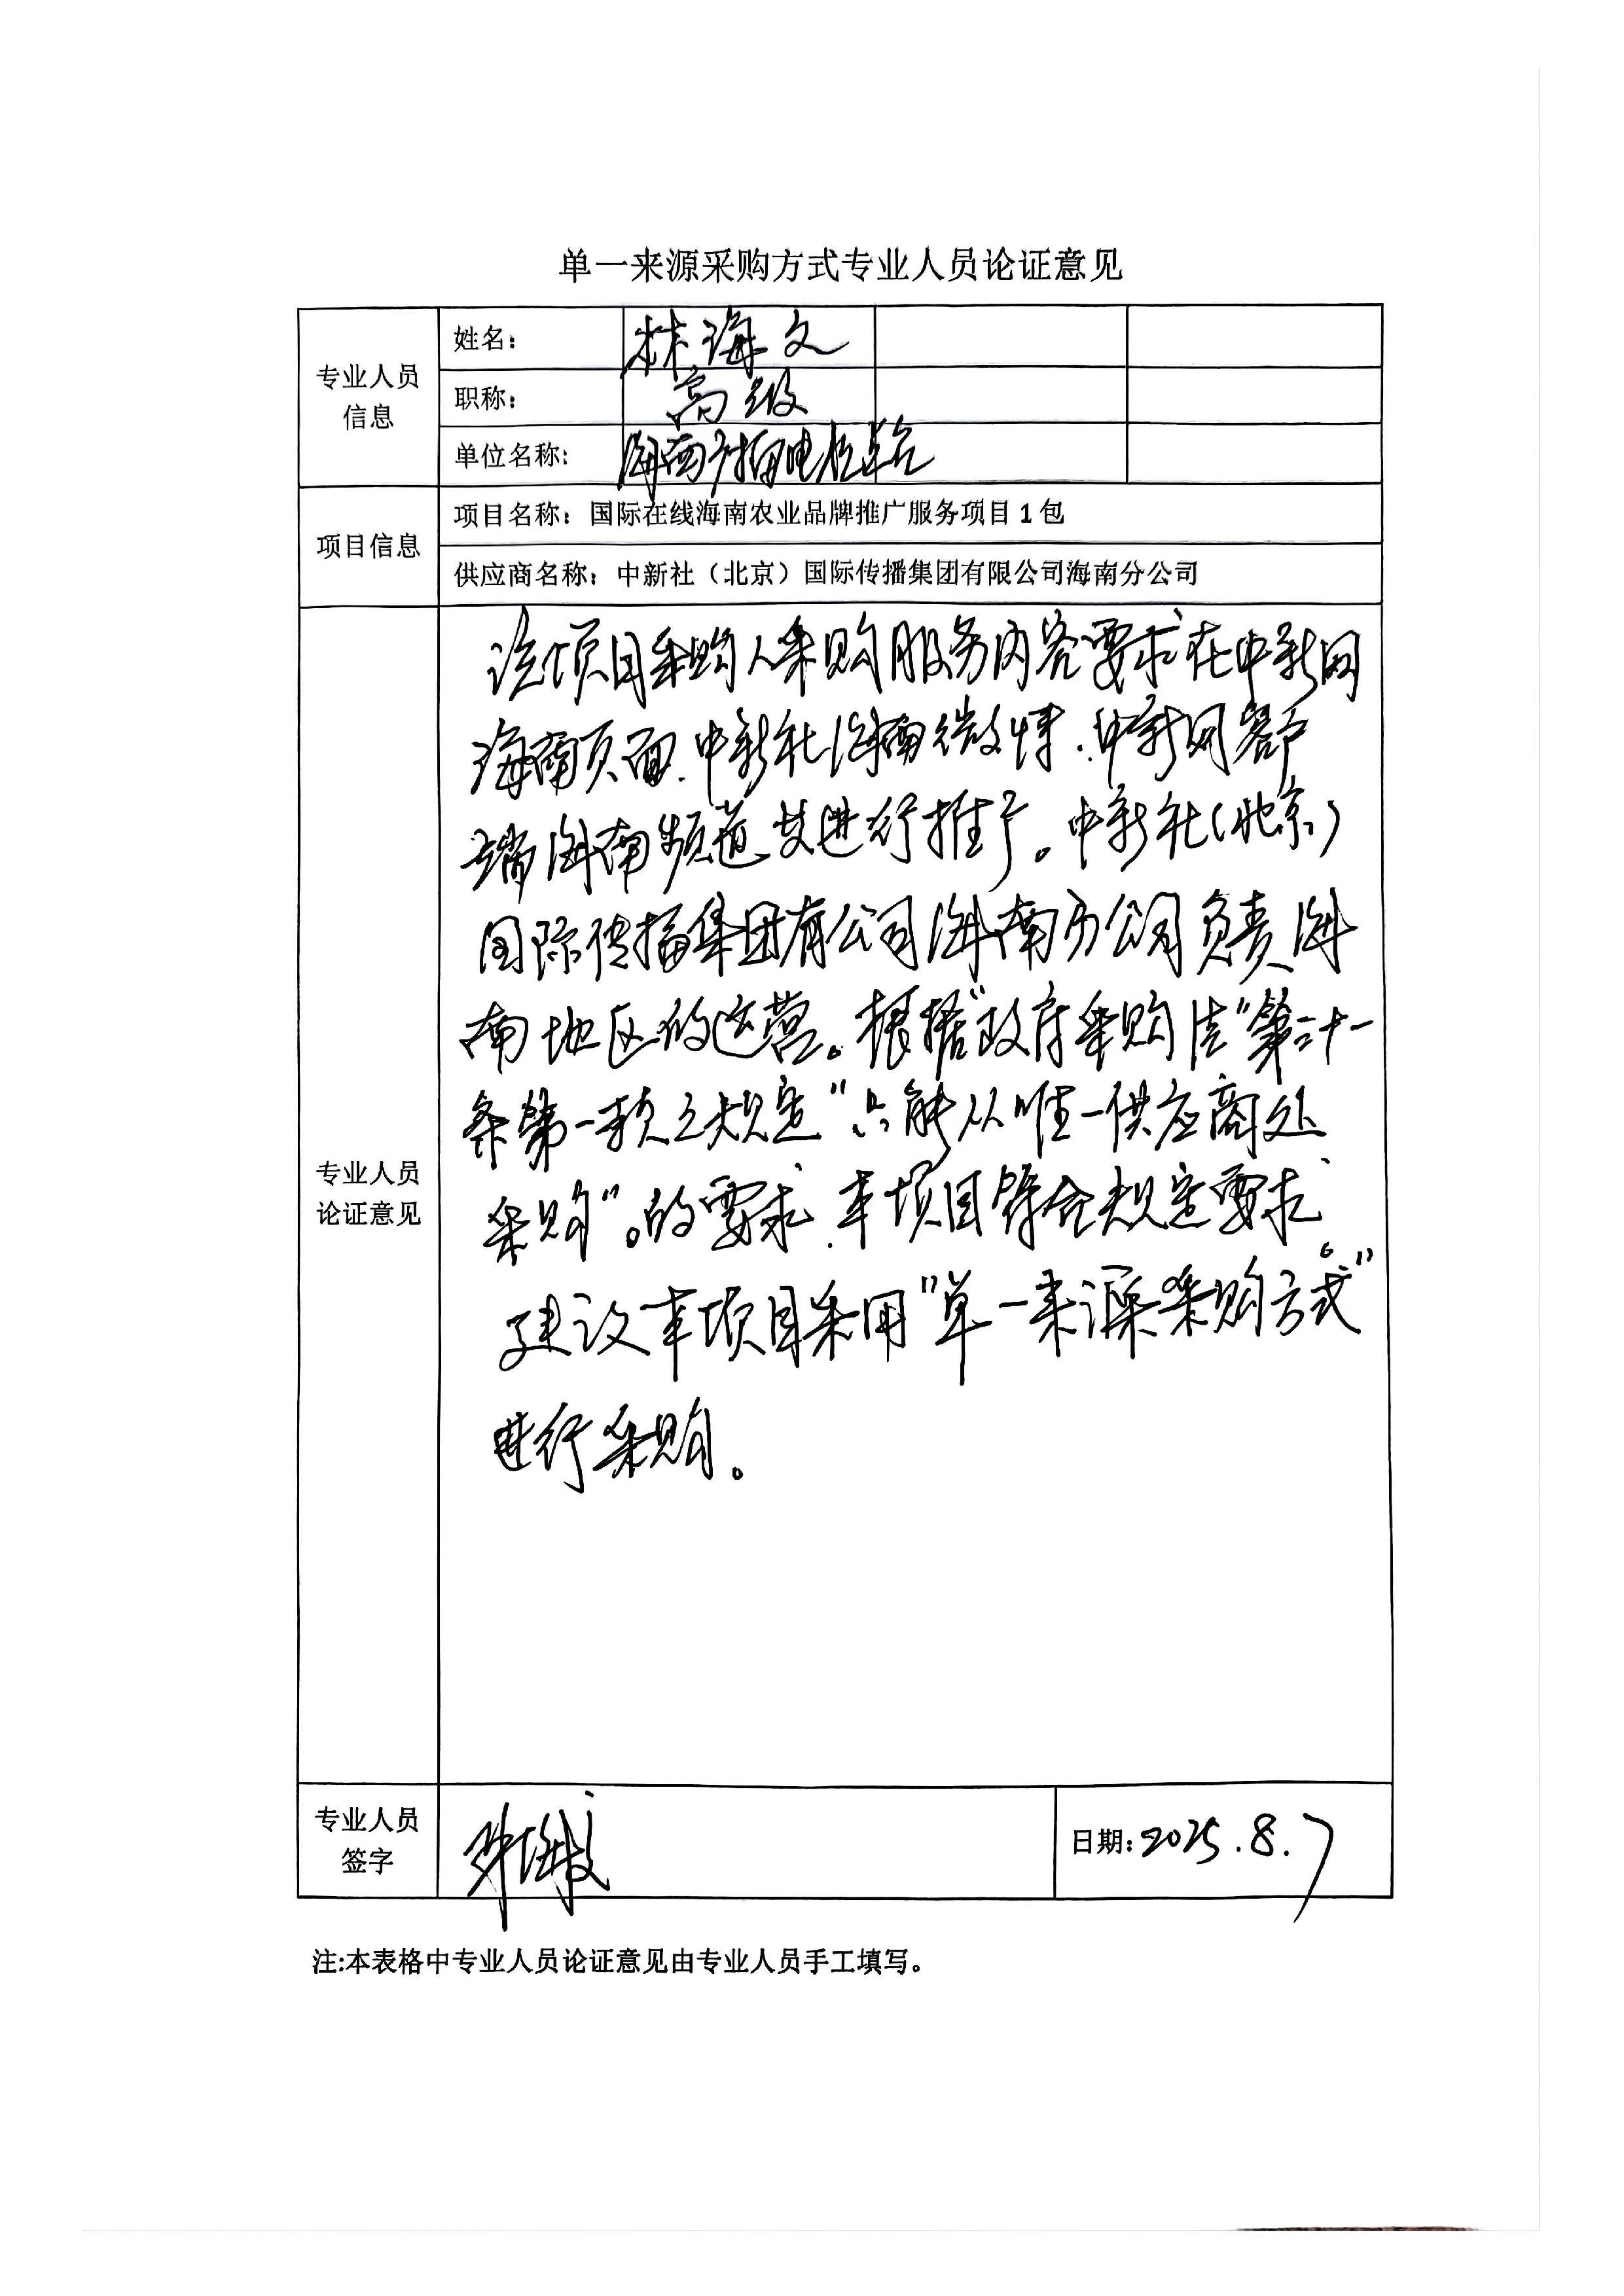 单一来源采购方式专业人员论证意见
专业人员
信息
姓名：
林海文
职称：
高级
单位名称：
海南广播电视总台
项目信息
项目名称：国际在线海南农业品牌推广服务项目1包
供应商名称：中新社（北京）国际传播集团有限公司海南分公司
专业人员
论证意见
该项目采购人采购服务内容要求在中新网
海南页面、中新社海南微博、中新网客户
端海南频道 进行推广。中新社（北京）
国际传播集团有公司海南分公司负责海
南地区的运营。根据"政府采购法"第三十一
条第一款之规定"只能从唯一供应商处
采购"。的要求、本项目符合规定要求。
建议本项目采用"单一来源采购方式"
进行采购。
专业人员
签字
林海文
日期：2025.8.7
注:本表格中专业人员论证意见由专业人员手工填写。